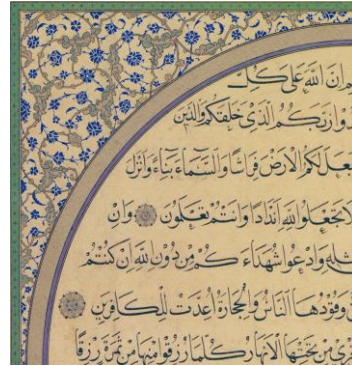 م ان الله على كل
دوا ربكم الذى خلقكم والذين
عل لكم الارض فراشا والسماء بناء وانزل
لا تجعلوا لله اندادا وانتم تعلمون وان
مثله وادعوا شهداءكم من دون الله ان كنتم
وقودها الناس والحجارة اعدت للكافرين
جرى من تحتها الانهار كلما رزقوا منها من ثمرة رزقا